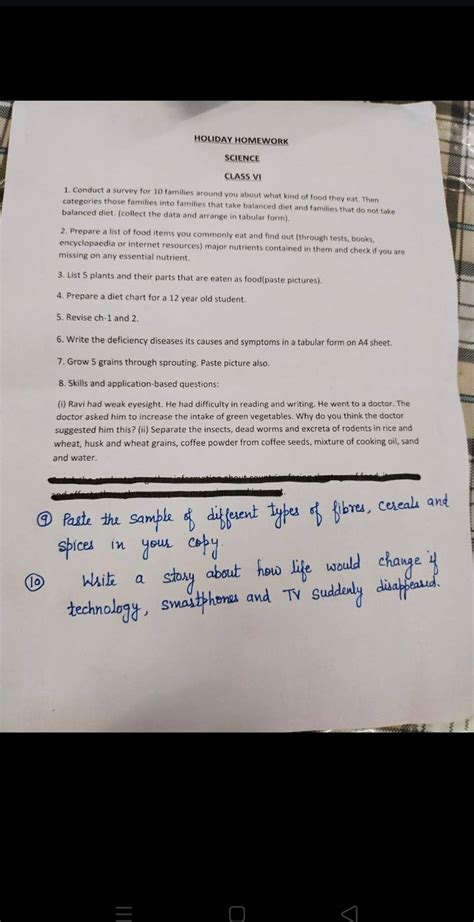 HOLIDAY HOMEWORK
SCIENCE
CLASS VI
1. Conduct a survey for 10 families around you about what kind of food they eat. Then
categories those families into families that take balanced diet and families that do not take
balanced diet. (collect the data and arrange in tabular form).
2. Prepare a list of food items you commonly eat and find out (through tests, books,
encyclopaedia or internet resources) major nutrients contained in them and check if you are
missing on any essential nutrient.
3. List 5 plants and their parts that are eaten as food(paste pictures).
4. Prepare a diet chart for a 12 year old student.
5. Revise ch-1 and 2.
6. Write the deficiency diseases its causes and symptoms in a tabular form on A4 sheet.
7. Grow 5 grains through sprouting. Paste picture also.
8. Skills and application-based questions:
(i) Ravi had weak eyesight. He had difficulty in reading and writing. He went to a doctor. The
doctor asked him to increase the intake of green vegetables. Why do you think the doctor
suggested him this? (ii) Separate the insects, dead worms and excreta of rodents in rice and
wheat, husk and wheat grains, coffee powder from coffee seeds, mixture of cooking oil, sand
and water.
9 Paste the sample of different types of fibres, cereals and
spices in your copy.
10 Write a story about how life would change if
technology, smartphones and TV suddenly disappeared.